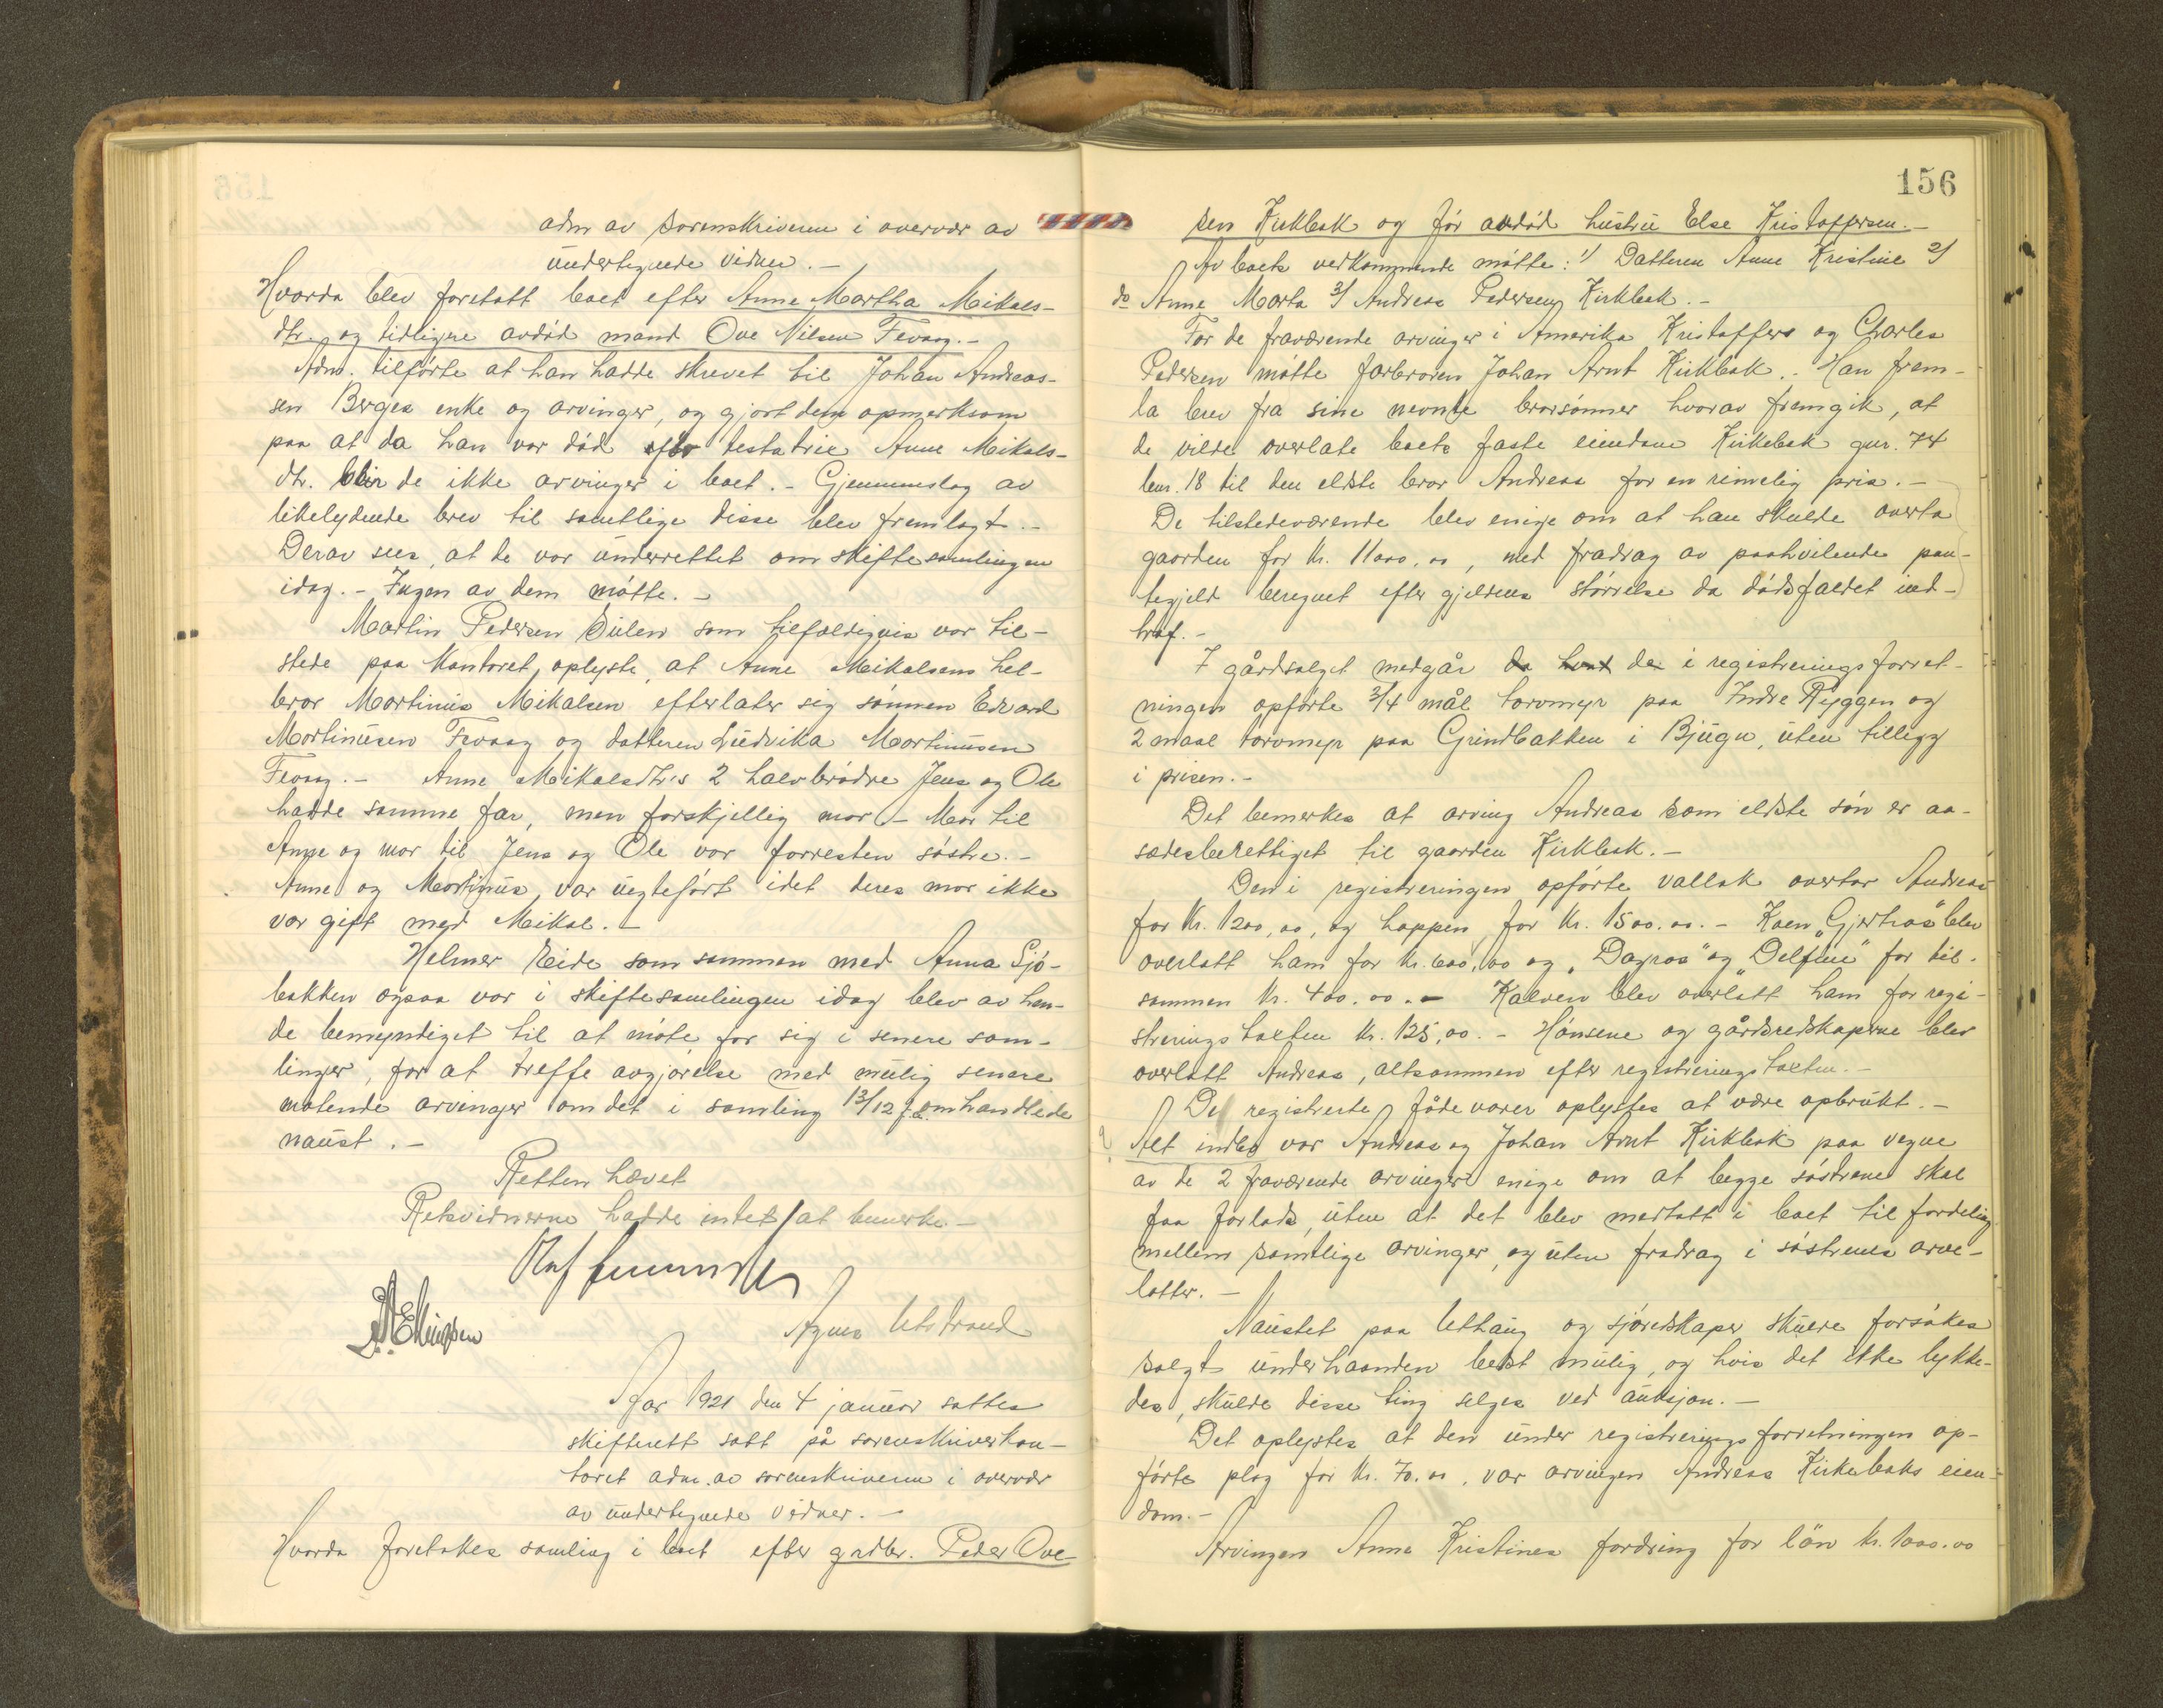 adm av sorenskriveren i overvær av
undertegnede vidner. -
Hvorda blev foretatt boet efter Anne Martha Mikals-
dtr. og tidligere avdød mand Ove Nilsen Fevaag. -
Adm. tilførte at han hadde skrevet til Johan Andreas-
sen Berges enke og arvinger, og gjort dem opmerksom
paa at da han var død efter testatrice Anne Mikals-
dtr. blir de ikke arvinger i boet. - Gjennemslag av
likelydende brev til samtlige disse blev fremlagt. -
Derav sees, at de var underrettet om skiftesamlingen
idag. - Ingen av dem møtte. -
Martin Pedersen Dülen som tilfældigvis var til-
stede paa kontoret, oplyste, at Anne Mikalsens hel-
bror Martinus Mikalsen efterlater sig sønnen Edvard
Martinusen Fevaag og datteren Ludvika Martinusen
Fevaag. - Anne Mikalsdtr's 2 halvbrødre Jens og Ole
hadde samme far, men forskjellig mor - Mor til
Anne og mor til Jens og Ole var forresten søstre. -
Anne og Martinus var uegteført idet deres mor ikke
var gift med Mikal. -
Helmer Eide som sammen med Anna Sjø-
bakken ogsaa var i skiftesamlingen idag blev av hen-
de bemyndiget til at møte for sig i senere sam-
linger, for at treffe avgjørelse med mulig senere
møtende arvinger om det i samling 13/12 f.a. omhandlede
naust. -
Retten hævet
Retsvidnerne hadde intet at bemerke -
Agnes Utstrand
Ellingsen
Aar 1921 den 4 januar sattes
skifterett satt på sorenskriverkon-
toret adm. av sorenskriveren i overvær
av undertegnede vidner. -
Hvorda foretokes samling i boet efter gadbr. Peder Ove-
156
sen Kirkbak og før avdød hustru Else Kristoffersen. -
Av boets vedkommende møtte: 1/ Datteren Anne Kristine 2/
do Anne Marta 3/ Andreas Pedersen Kirkbak. -
For de fraværende arvinger i Amerika Kristoffers og Charles
Pedersen møtte farbroren Johan Arnt Kirkbak. - Han frem-
la brev fra sine nevnte brorsønner hvorav fremgik, at
de vilde overlate boets faste eiendom Kirkebak gnr. 74
bnr. 18 til den eldste bror Andreas for en rimelig pris. -
De tilstedeværende blev enige om at han skulde overta
gaarden for kr. 11000,00, med fradrag av paahvilende pan-
tegjeld beregnet efter gjeldens størrelse da dødsfaldet ind-
traf. -
I gårdsalget medgår de i registreringsforret-
ningen opførte 3/4 mål torvmyr paa Indre Ryggen og
2 maal torvmyr paa Grindbakken i Bjugn, uten tillegg
i prisen. -
Det bemerkes at arving Andreas som eldste søn er aa-
sædesberettiget til gaarden Kirkbak. -
Den i registreringen opførte vallak overtar Andreas
for kr. 1200,00, og hoppen for kr. 1500.00. - Koen "Gjertros" blev
overlatt ham for kr. 600,00 og "Dagros" og "Delfine" for til-
sammen kr. 400.00. - Kalven blev overlatt ham for regi-
streringstaksten kr. 125,00. - Hønsene og gårdsredskaperne blev
overlatt Andreas, altsammen efter registreringstaksten. -
De registrerte fødevarer oplystes at være opbrukt. -
Alt indbo var Andreas og Johan Arnt Kirkbak paa vegne
av de 2 fraværende arvinger enige om at begge søstrene skal
faa forlods, uten at det blev medtatt i boet til fordeling
mellem samtlige arvinger, og uten fradrag i søstrenes arve-
lotter. -
Naustet paa Uthaug og sjøredskaper skulde forsøkes
solgt underhaanden bedst mulig, og hvis det ikke lykke-
des, skulde disse ting selges ved auksjon. -
Det oplystes at den under registreringsforretningen op-
førte plog for kr. 70.00. var arvingen Andreas Kirkebaks eien-
dom. -
Arvingen Anne Kristines fordring for løn kr. 1000.00